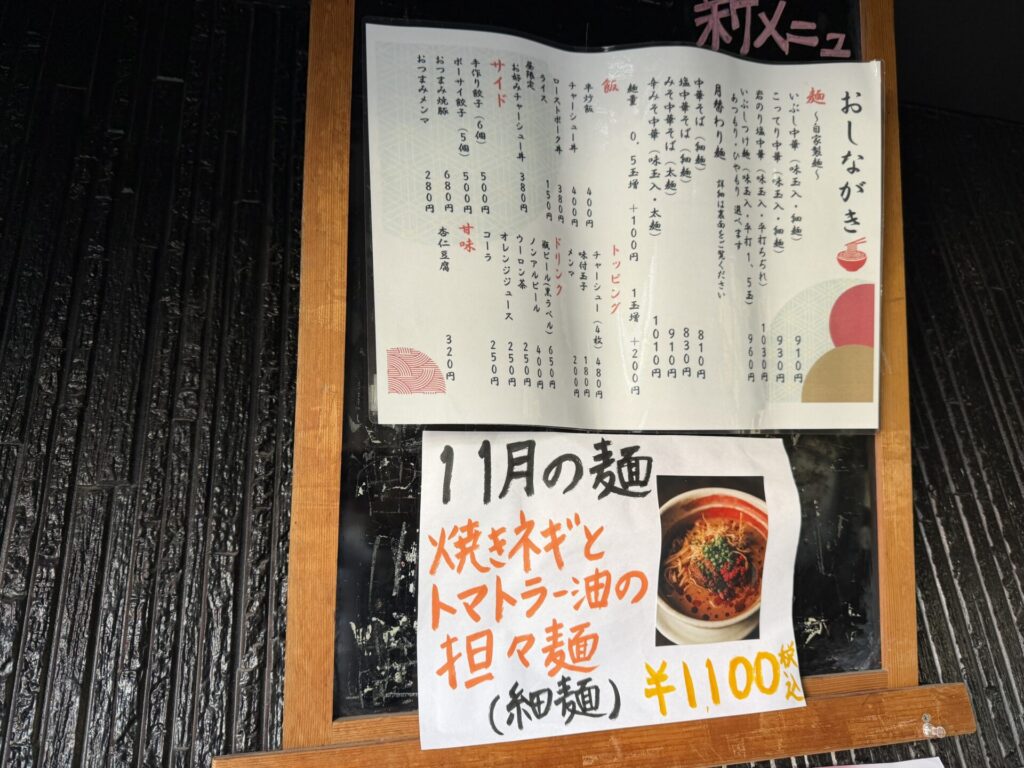 新メニュ
おしながき
麺 ～自家製麺～
いぶし中華（味玉入・細麺） 910円
こってり中華（味玉入・細麺） 930円
岩のり塩中華（味玉入・手打ちぢれ） 1030円
いぶしつけ麺（味玉入・手打1、5玉） 960円
あつもり・ひやもり 選べます
月替わり麺 詳細は裏面をご覧ください
中華そば（細麺） 810円
塩中華そば（細麺） 830円
みそ中華そば（太麺） 910円
辛みそ中華（味玉入・太麺） 1010円
麺量 0．5玉増 ＋100円 1玉増 ＋200円
飯
半炒飯 400円
チャーシュー丼 400円
ローストポーク丼 380円
ライス 150円
昼限定
お好みチャーシュー丼 380円
サイド
手作り餃子（6個） 500円
ポーサイ餃子（5個） 500円
おつまみ焼豚 680円
おつまみメンマ 280円
トッピング
チャーシュー（4枚） 480円
味付玉子 180円
メンマ 200円
ドリンク
瓶ビール（黒ラベル） 650円
ノンアルビール 400円
ウーロン茶 250円
オレンジジュース 250円
コーラ 250円
甘味
杏仁豆腐 320円
11月の麺
焼きネギと
トマトラー油の
担々麺
（細麺）
¥1,100税込